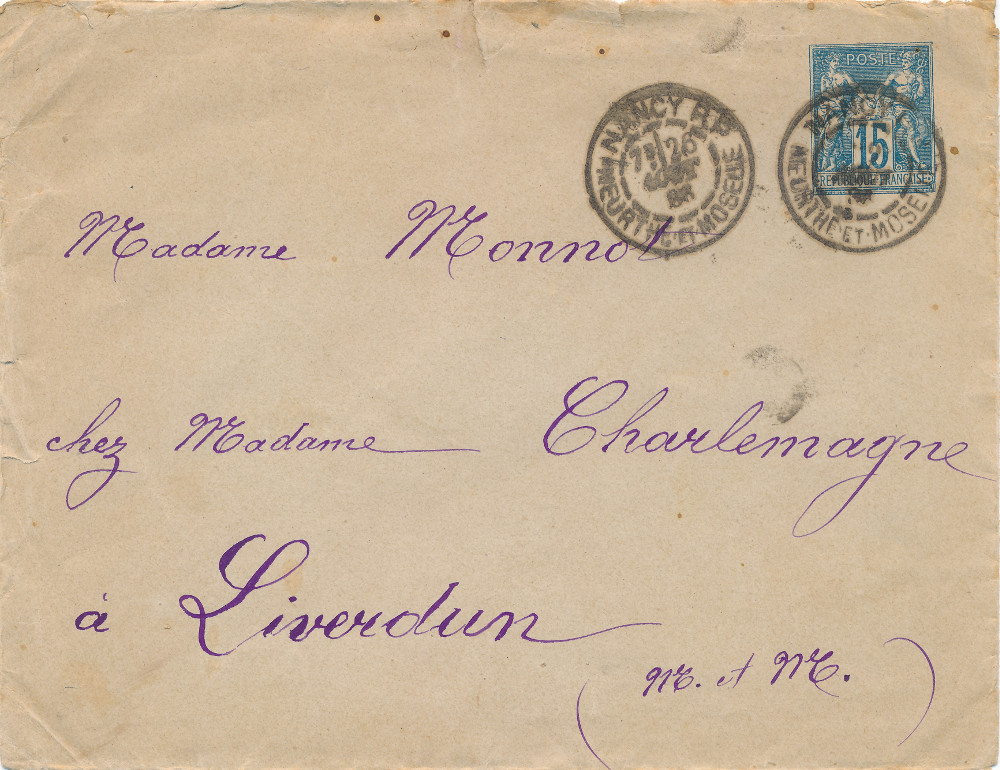 POSTE
15
REPUBLIQUE FRANÇAISE
NANCY R.P.
26
MEURTHE-ET-MOSELLE
NANCY
MEURTHE-ET-MOSELLE
Madame Monnot
chez Madame Charlemagne
à Liverdun
(M. et M.)